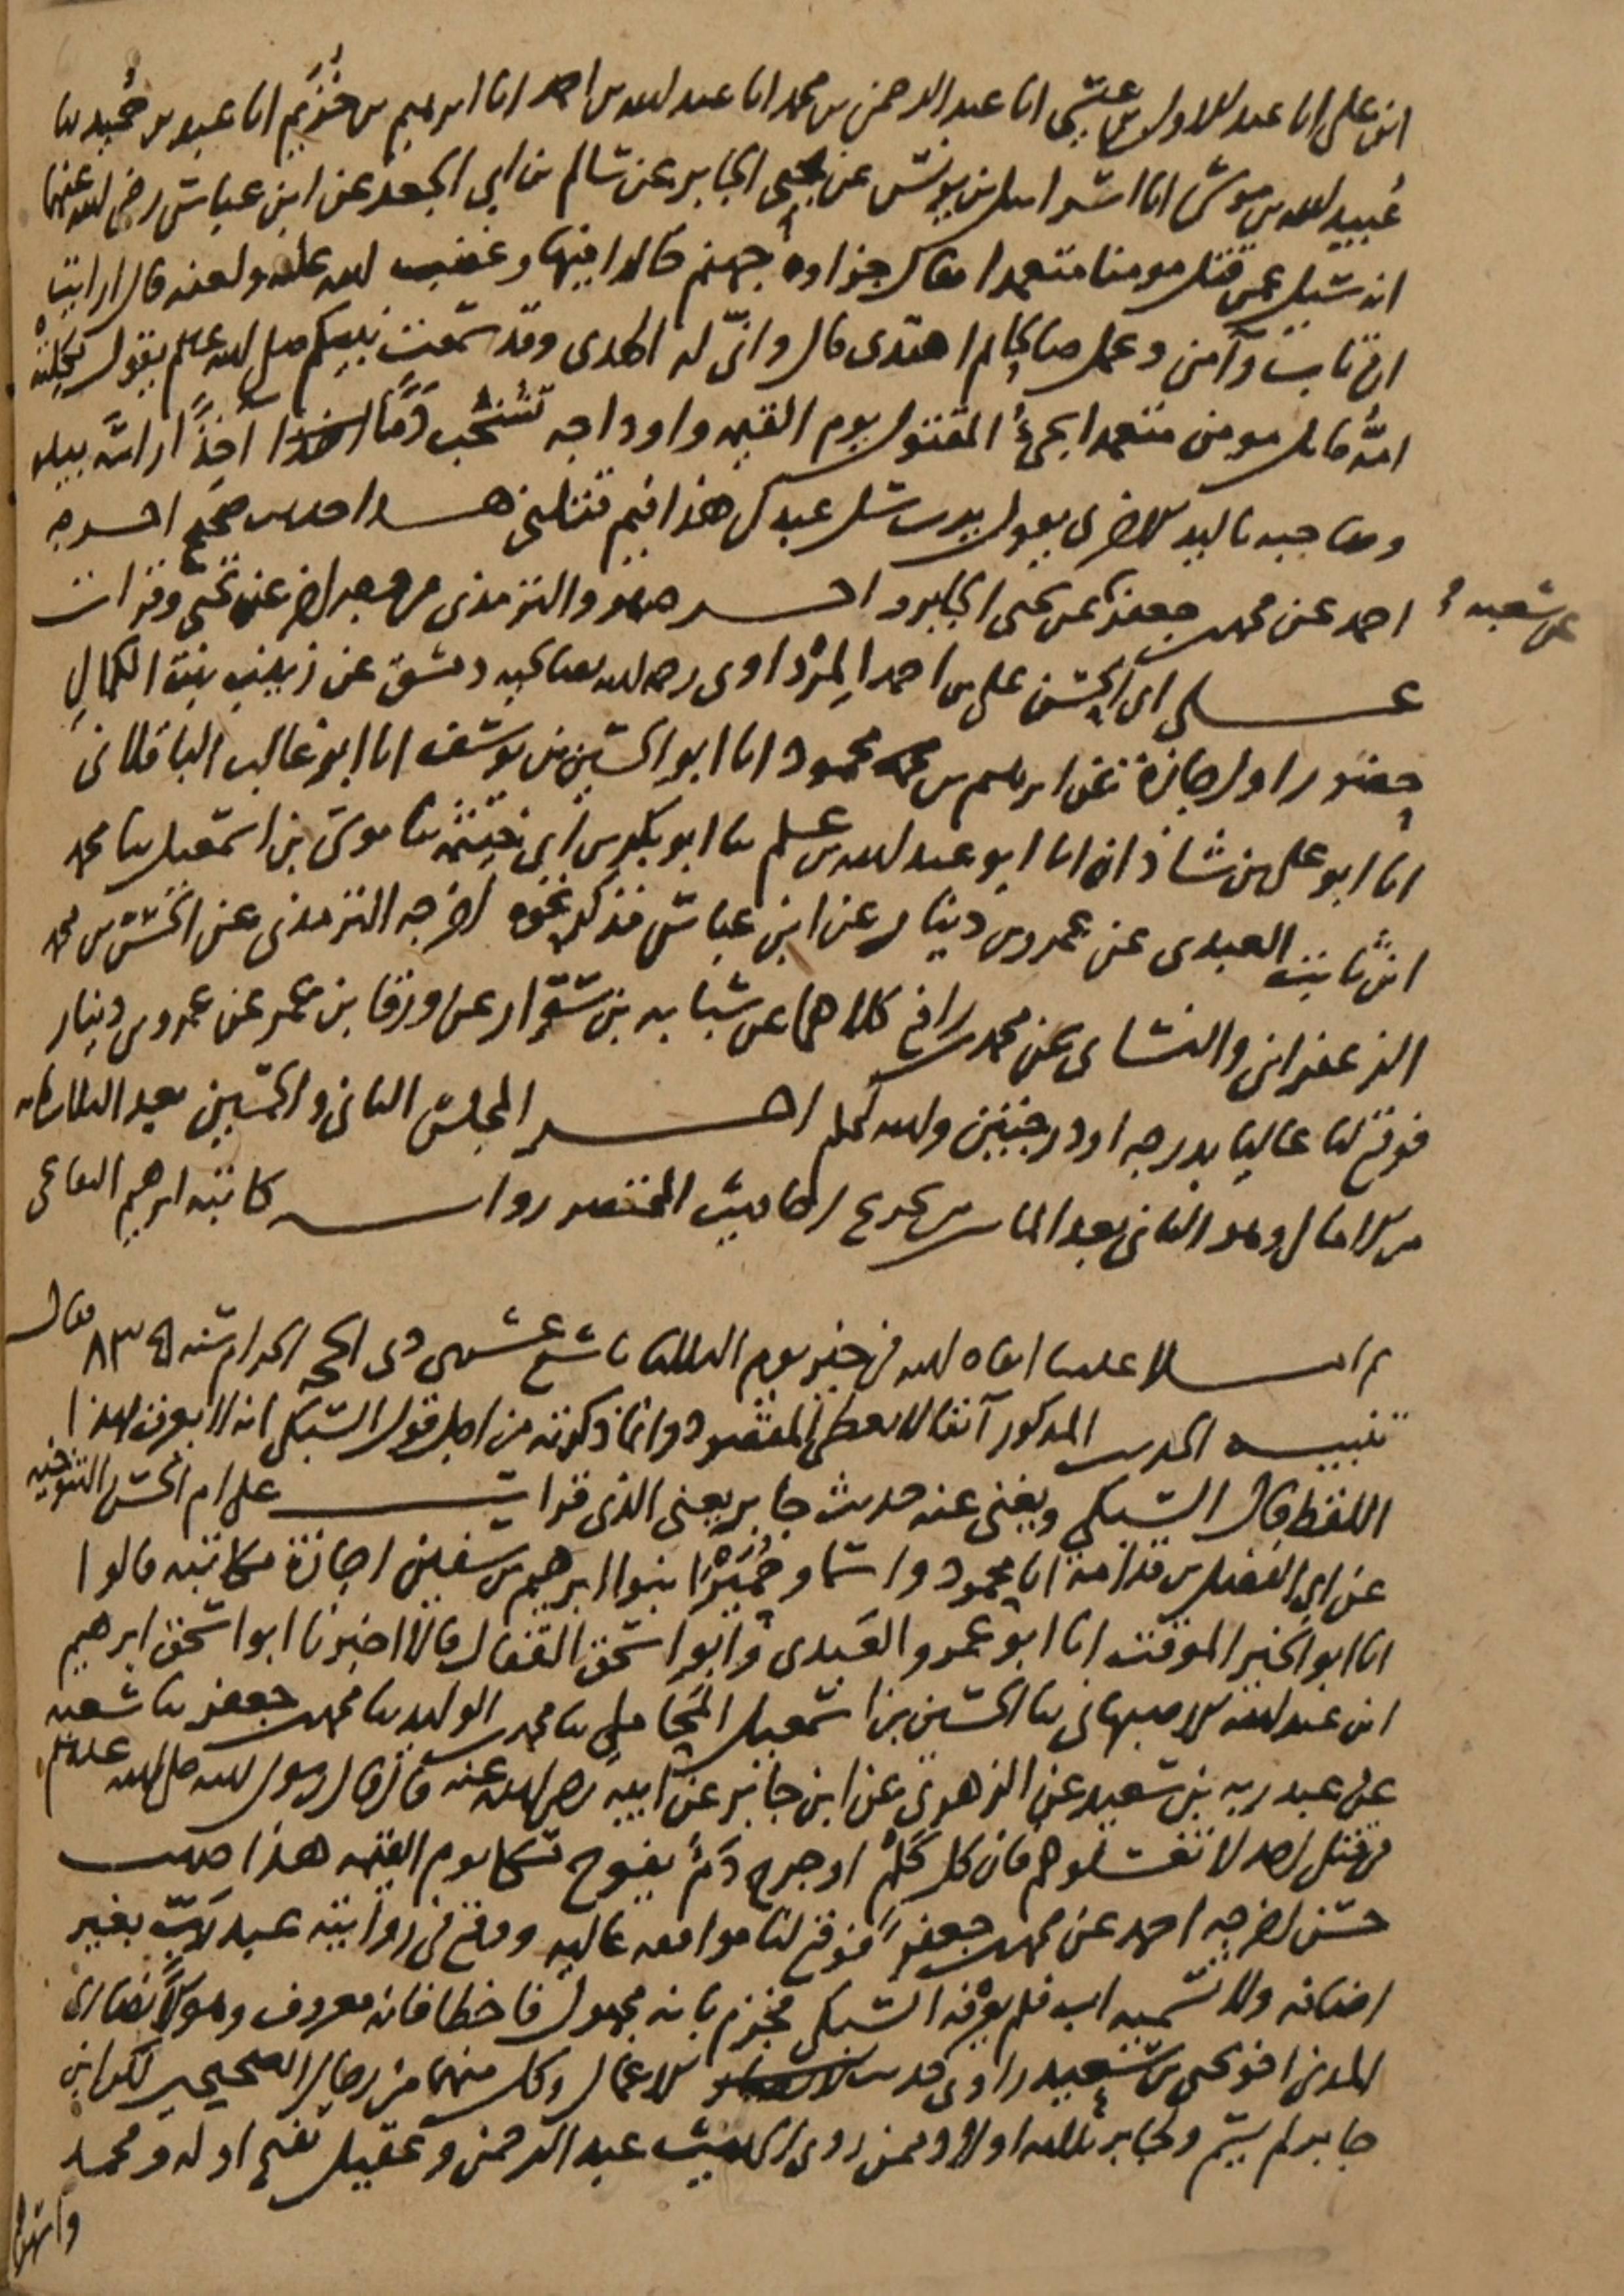 ابن على انا عبد الاول بن عيسى انا عبد الرحمن بن محمد انا عبد الله بن احمد انا ابرهيم بن خُزَيم انا عبد بن حُميد ثنا
عُبيد الله بن موسى انا اسرائيل بن يونس عن يحيى الجابر عن سالم بن ابي الجعد عن ابن عباس رضي الله عنهما
انه سئل عمن قتل مومنا متعمدا فقال جزاوه جهنم خالدا فيها وغضب الله عليه ولعنه قال ارايت
ان تاب وآمن وعمل صالحا ثم اهتدى قال وانّى له الهدى وقد سمعت نبيكم صلى الله عليه وسلم يقول ثكلته
امّه قاتل مومن متعمدا يجئ المقتول يوم القيمه واوداجه تشخب دَمًا اخِذًا راسَه بيده
وصاحبه باليد الاخرى يقول يا رب سل عبدك هذا فيم قتلني هذا حديث صحيح اخرجه
احمد عن محمد بن جعفر عن شعبه عن يحيى الجابر والترمذي من وجه اخر عن يحيى وقرات
على ابي الحسن على بن احمد المِرْداوى رحمه الله بصالحيه دمشق عن زينب بنت الكمال
حضورا واجازة عن ابرهيم بن محمود انا ابو الحسين بن يوسف انا ابو غالب الباقلاني
انا ابو على بن شاذان انا ابو عبد الله بن علم ثنا ابو بكر بن ابي خيثمه ثنا موسى بن اسمعيل ثنا محمد
ابن ثابت العبدى عن عمرو بن دينار عن ابن عباس فذكر نحوه اخرجه الترمذى عن الحسن بن محمد
الزعفرانى والنسائى عن محمد بن رافع كلاهما عن شبابه بن سوّار عن ورقا بن عمر عن عمرو بن دينار
فوقع لنا عاليا بدرجه او درجتين ولله الحمد اخر المجلس الثانى والخمسين بعد الثلاثمائه
من الامالى وهو الثانى بعد المائتين من تخريج احاديث المختصر روايه كاتبه ابرهيم البقاعى
ثم املا علينا ابقاه الله في خير يوم الثلاثا تاسع عشرى ذى الحجه الحرام سنه ٨٣٥ فقال
تنبيه الحديث المذكور آنفا لا يعطى المقصود وانما ذكرته من اجل قول السبكى انه لا يعرف بهذا
اللفظ قال السبكى ويغنى عنه حديث جابر يعنى الذى قرات على ام الحسن التنوخيه
عن ابى الفضل بن قدامة انا محمود واسما وحُمَيْرَا بنوا ابرهيم بن سفين اجازة مكاتبه قالوا
انا ابو الخير الموقت انا ابو عمرو العبدى وابو اسحق القفال قالا اخبرنا ابو اسحق ابرهيم
ابن عبد الله الاصبهانى ثنا الحسين بن اسمعيل المحاملى ثنا محمد بن الوليد ثنا محمد بن جعفر ثنا شعبه
عن عبد ربه بن سعيد عن الزهرى عن ابن جابر عن ابيه رضى الله عنه قال قال رسول الله صلى الله عليه وسلم
في قتلى احد لا تغسلوهم فان كل كَلْم او جرح دَم يفوح مسكا يوم القيمه هذا حديث
حسن اخرجه احمد عن محمد بن جعفر فوقع لنا موافقه عاليه ووقع في روايته عبد رَبّ بغير
اضافه ولا تسميه اب فلم يعرفه السبكى فجزم بانه مجهول فاخطا فانه معروف وهو الانصارى
المدنى اخو يحيى بن سعيد راوى حديث الاعمال وكل منهما من رجال الصحيحين لكن ابن
جابر لم يسم ولجابر ثلثه اولاد ممن روى الحديث عبد الرحمن وعقيل بفتح اوله ومحمد
واشهرهم
عن شعبه